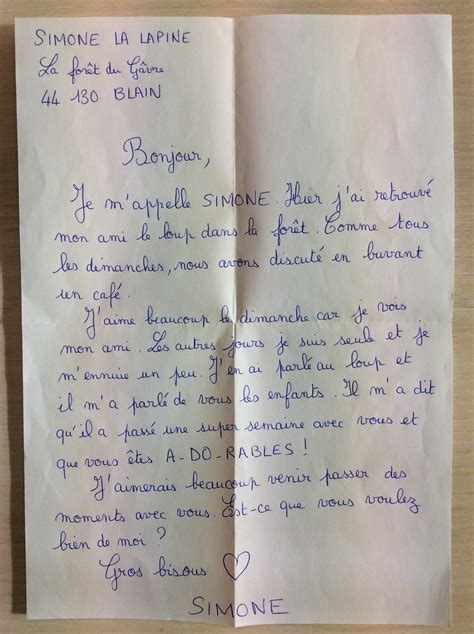 SIMONE LA LAPINE
La forêt du Gâvre
44 130 BLAIN
Bonjour,
Je m'appelle SIMONE. Hier j'ai retrouvé
mon ami le loup dans la forêt. Comme tous
les dimanches, nous avons discuté en buvant
un café.
J'aime beaucoup le dimanche car je vois
mon ami. Les autres jours je suis seule et je
m'ennuie un peu. J'en ai parlé au loup et
il m'a parlé de vous les enfants. Il m'a dit
qu'il a passé une super semaine avec vous et
que vous êtes A-DO-RABLES !
J'aimerais beaucoup venir passer des
moments avec vous. Est-ce que vous voulez
bien de moi ?
Gros bisous ♡
SIMONE